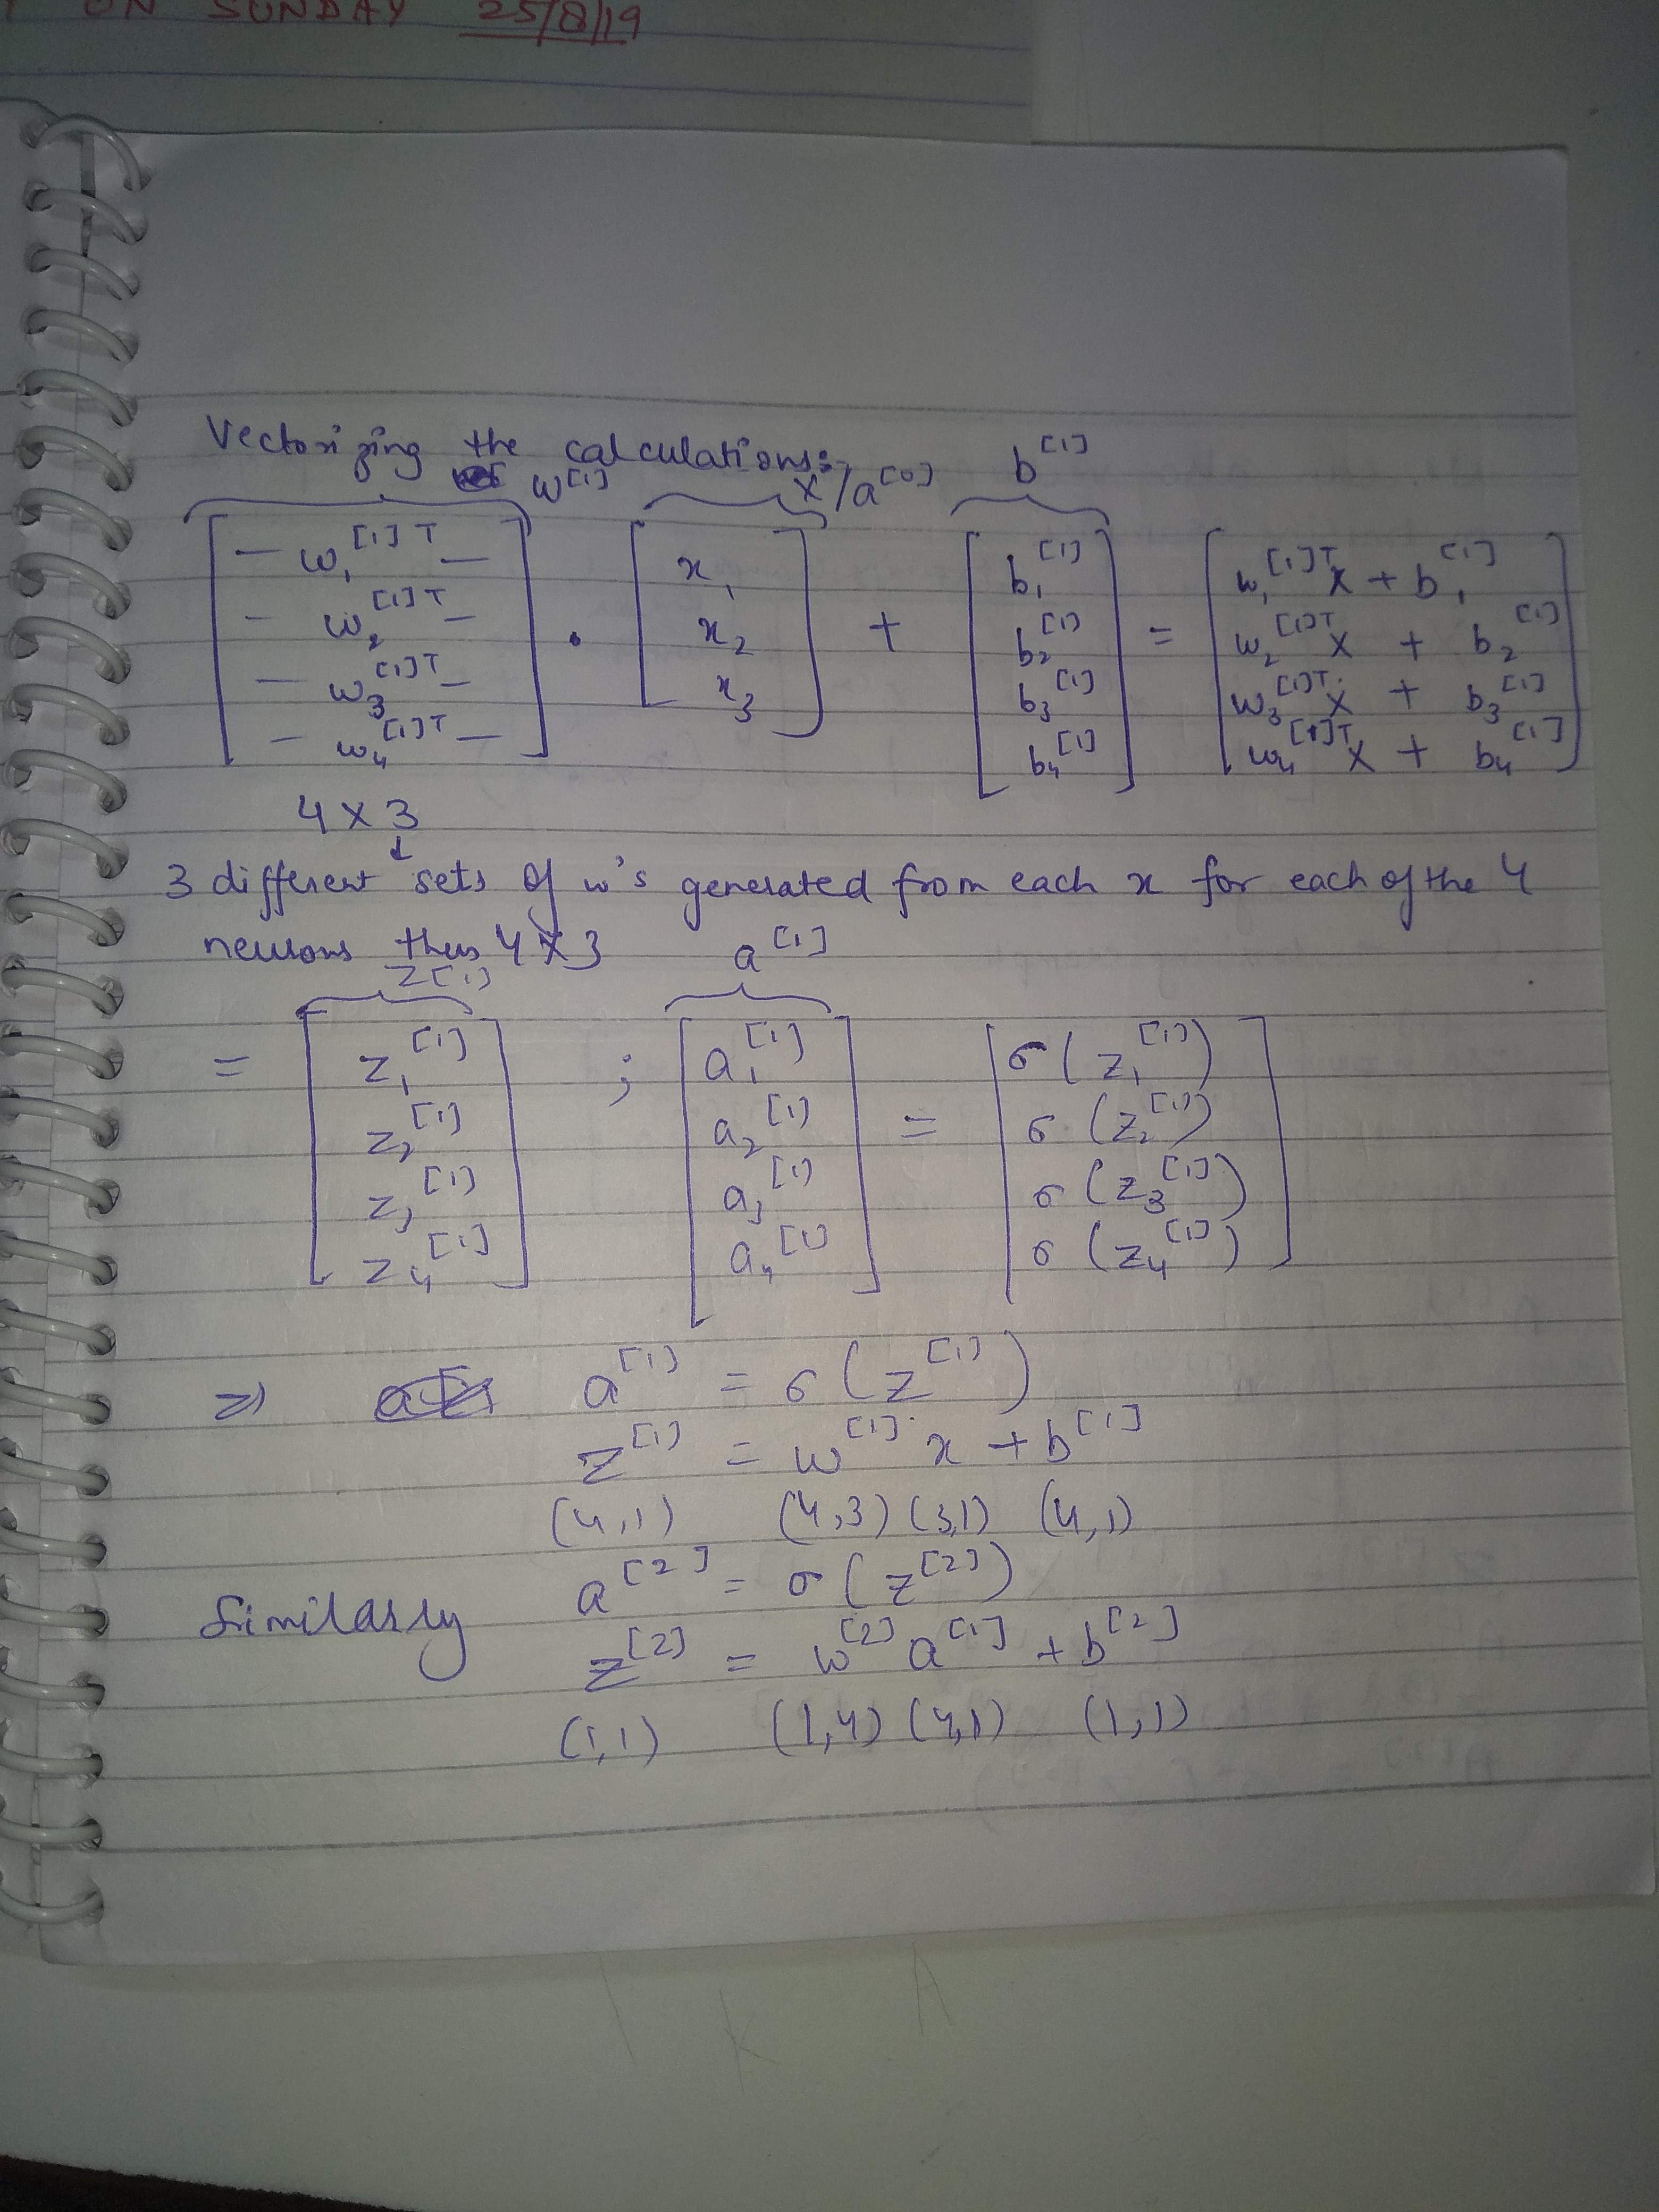 ON SUNDAY 25/8/19
Vectorizing the calculations:-
W[1] X/a[0] b[1]
[ — w₁[1]T — ] [ x₁ ] [ b₁[1] ] [ w₁[1]T X + b₁[1] ]
[ — w₂[1]T — ] . [ x₂ ] + [ b₂[1] ] = [ w₂[1]T X + b₂[1] ]
[ — w₃[1]T — ] [ x₃ ] [ b₃[1] ] [ w₃[1]T X + b₃[1] ]
[ — w₄[1]T — ] [ b₄[1] ] [ w₄[1]T X + b₄[1] ]
4 X 3
↓
3 different sets of w's generated from each x for each of the 4
neurons thus 4 X 3
z[1] a[1]
= [ z₁[1] ] ; [ a₁[1] ] [ σ(z₁[1]) ]
[ z₂[1] ] [ a₂[1] ] = [ σ(z₂[1]) ]
[ z₃[1] ] [ a₃[1] ] [ σ(z₃[1]) ]
[ z₄[1] ] [ a₄[1] ] [ σ(z₄[1]) ]
⇒ a[1] = σ(z[1])
z[1] = w[1] x + b[1]
(4,1) (4,3) (3,1) (4,1)
Similarly a[2] = σ(z[2])
z[2] = w[2] a[1] + b[2]
(1,1) (1,4) (4,1) (1,1)
K A